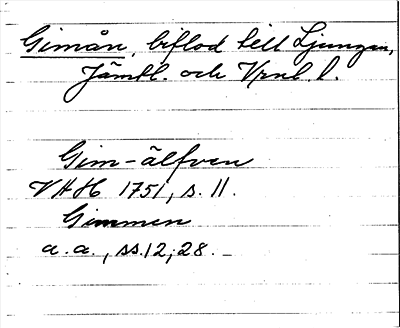 Gimån, biflod till Ljungan,
Jämtl. och Vrnl. l.
Gim-älfven
VAH 1751, s. 11.
Gimmen
a. a., ss. 12, 28. -